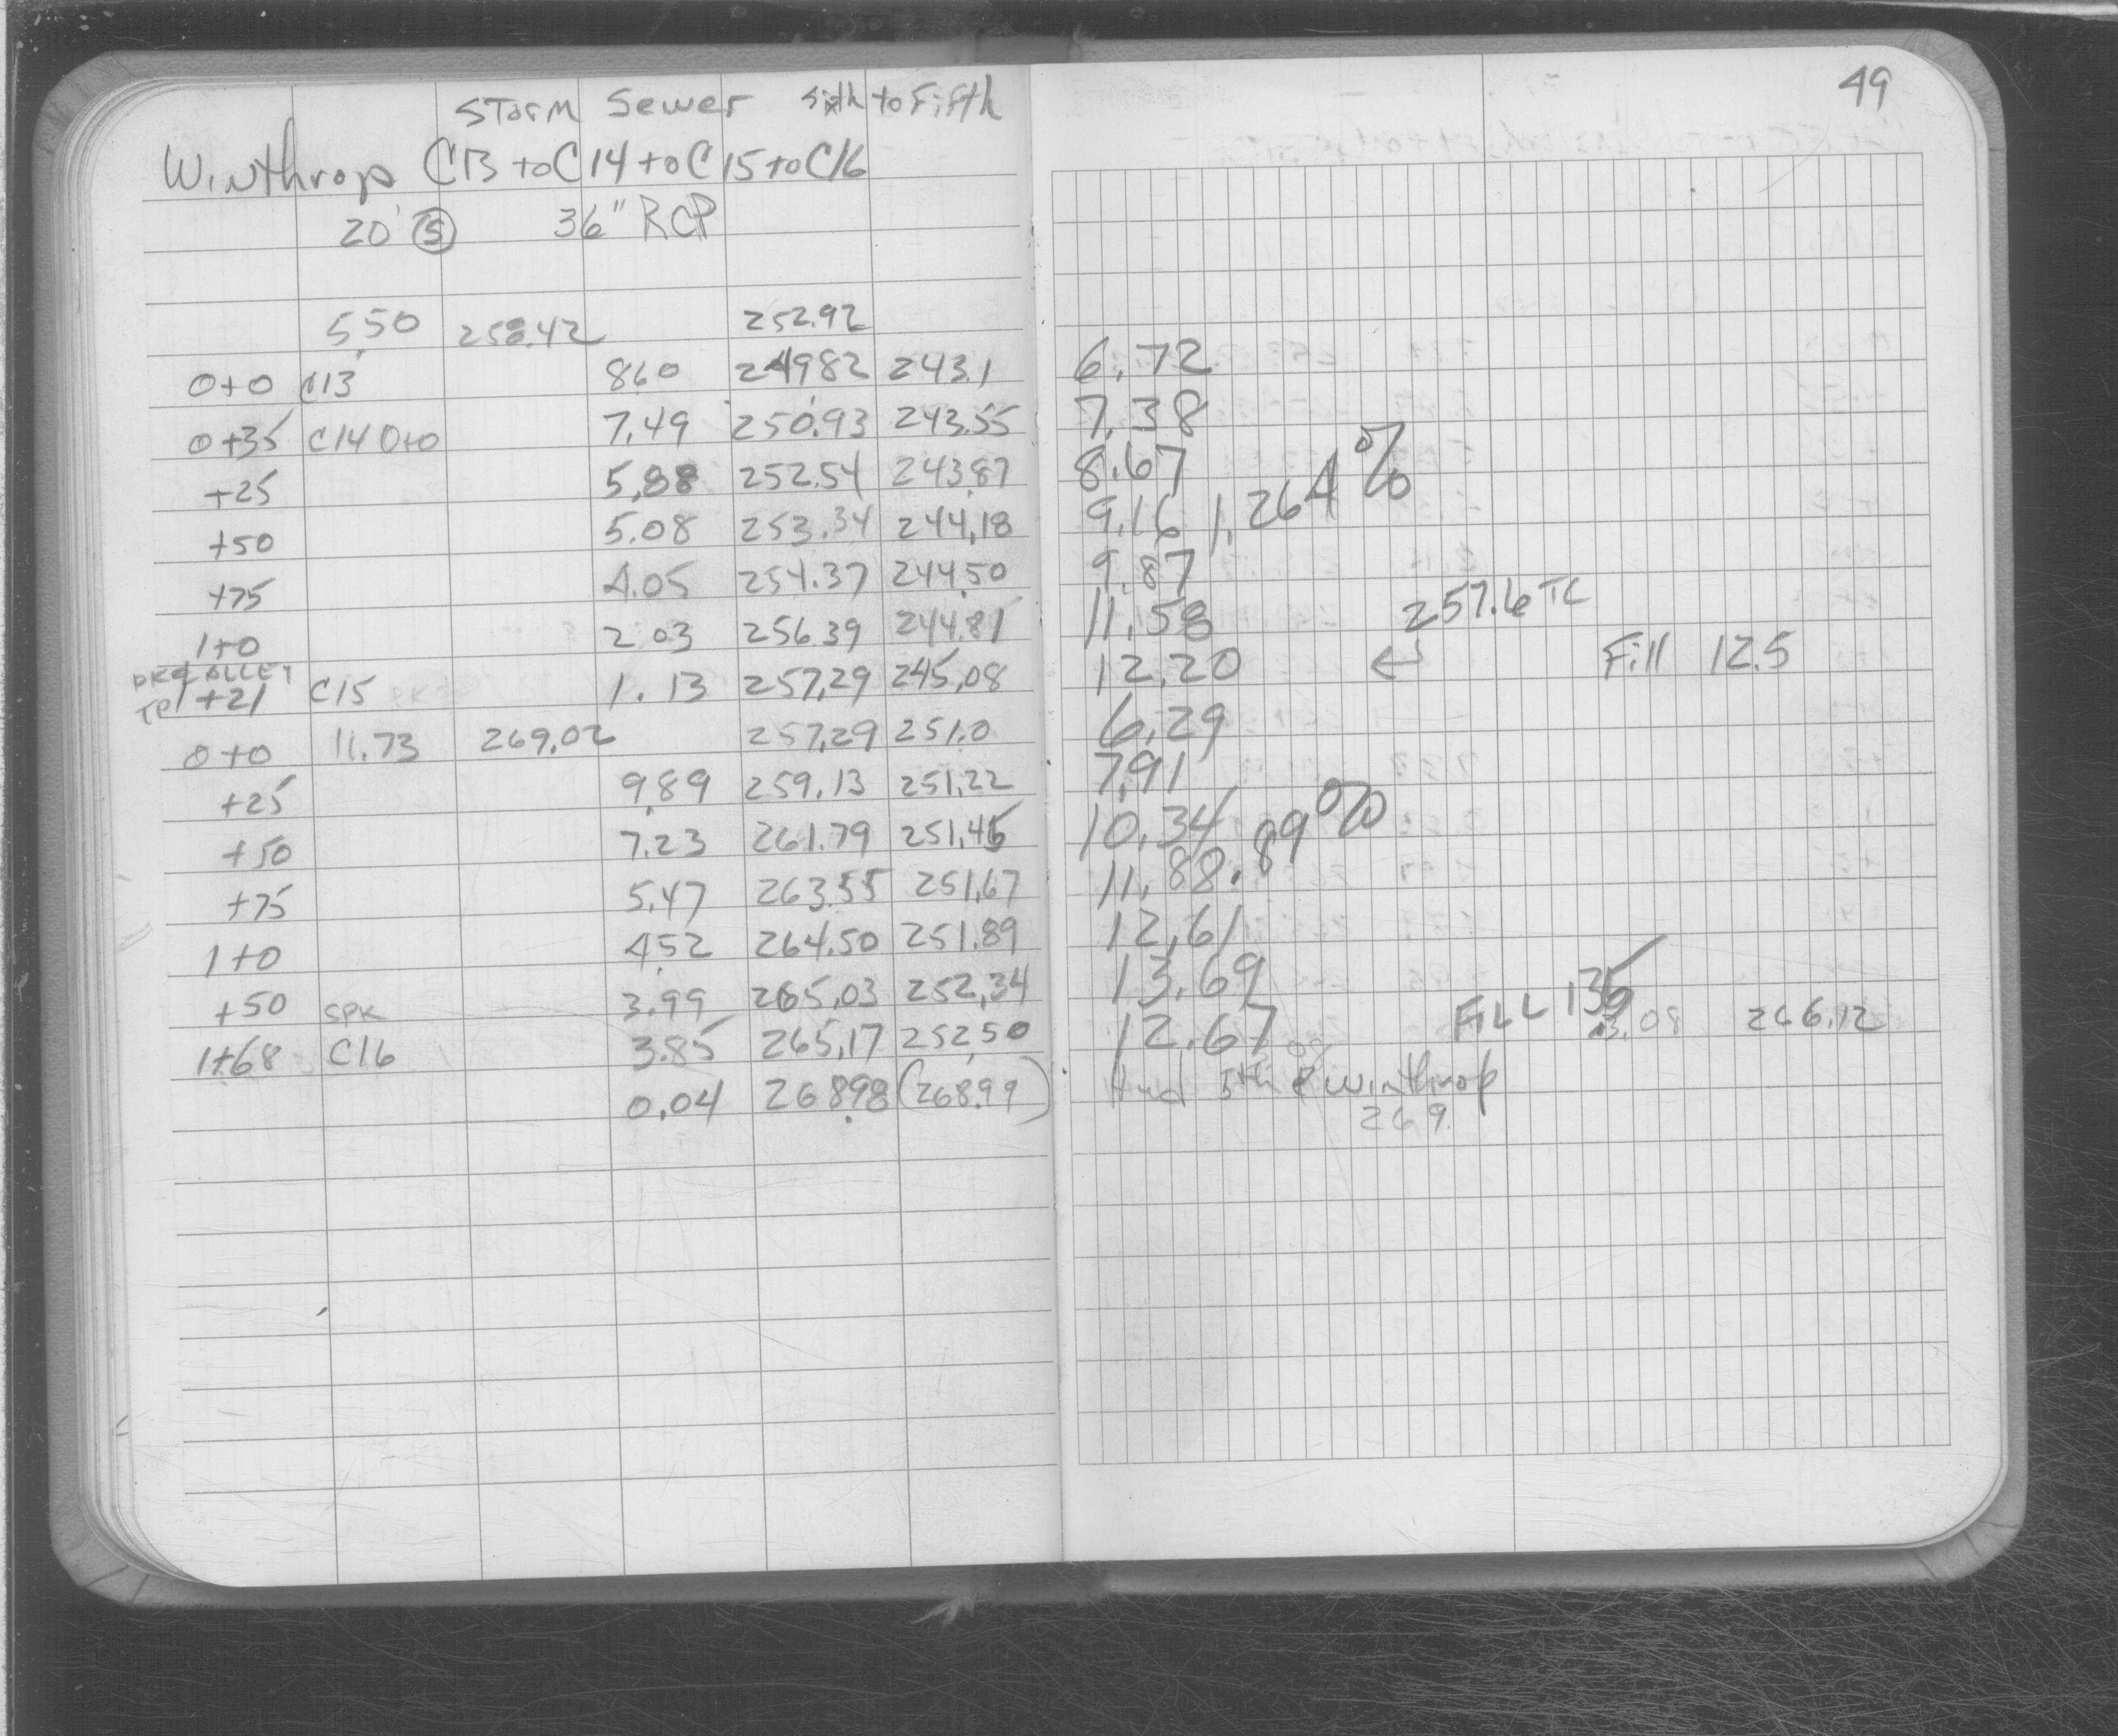 49
STORM Sewer Sixth to Fifth
Winthrop C13 to C14 to C15 to C16
20' S 36" RCP
5.50 258.42 252.92
0+0 C13 8.60 249.82 243.1 6.72
0+35 C14 0+0 7.49 250.93 243.55 7.38
+25 5.88 252.54 243.87 8.67
+50 5.08 253.34 244.18 9.16 1.264%
+75 4.05 254.37 244.50 9.87
1+0 2.03 256.39 244.81 11.58 257.6 TC
PK@ ALLEY
TP 1+21 C15 1.13 257.29 245.08 12.20 ← Fill 12.5
0+0 11.73 269.02 257.29 251.0 6.29
+25 9.89 259.13 251.22 7.91
+50 7.23 261.79 251.45 10.34 .89%
+75 5.47 263.55 251.67 11.88
1+0 4.52 264.50 251.89 12.61
+50 SPK 3.99 265.03 252.34 13.69
1+68 C16 3.85 265.17 252.50 12.67 FILL 13.08 266.12
0.04 268.98 (268.99) Hyd 5th & Winthrop
269.